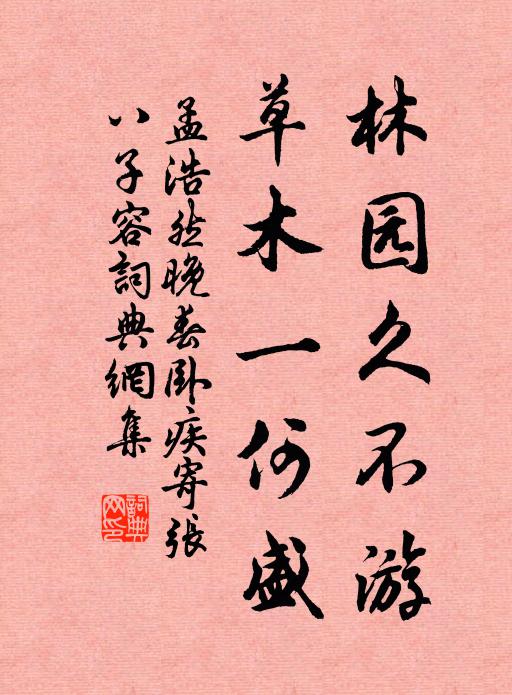 林园久不游
草木一何盛
孟浩然晚春卧疾寄張
八子容詞典網集
詞典
网印